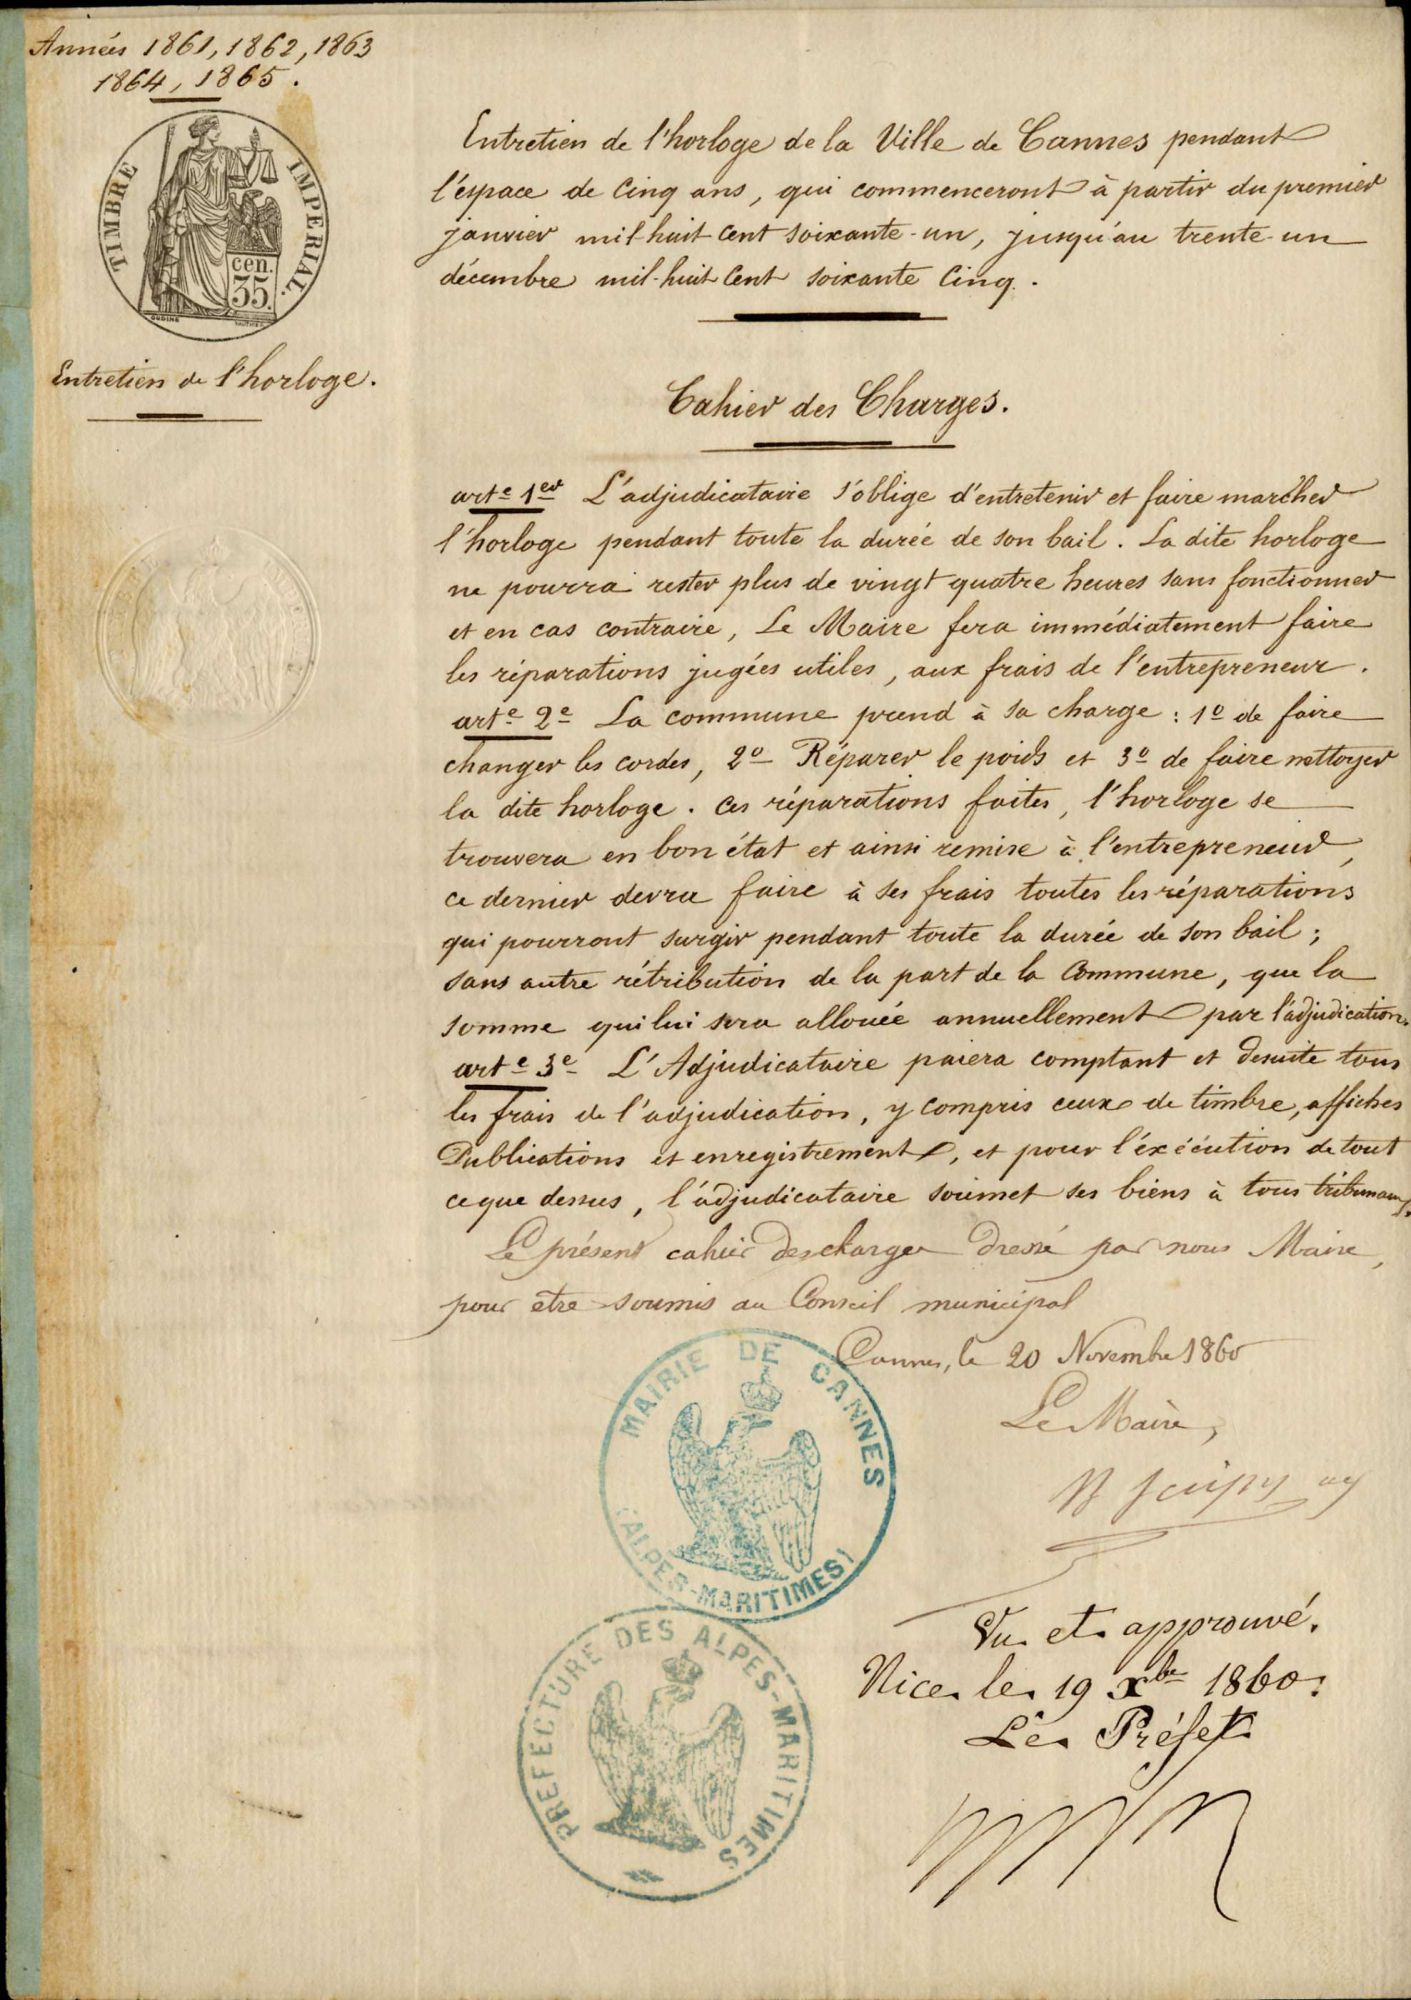 Années 1861, 1862, 1863
1864, 1865.
TIMBRE IMPÉRIAL.
cen.
35.
OUDINÉ
Entretien de l'horloge.
Entretien de l'horloge de la Ville de Cannes pendant
l'espace de cinq ans, qui commenceront à partir du premier
janvier mil huit cent soixante-un, jusqu'au trente-un
décembre mil-huit cent soixante cinq.
Cahier des Charges.
arte 1er L'adjudicataire s'oblige d'entretenir et faire marcher
l'horloge pendant toute la durée de son bail. La dite horloge
ne pourra rester plus de vingt quatre heures sans fonctionner
et en cas contraire, Le Maire fera immédiatement faire
les réparations jugées utiles, aux frais de l'entrepreneur.
arte 2e La commune prend à sa charge : 1o de faire
changer les cordes, 2o Réparer le poids et 3o de faire nettoyer
la dite horloge. Ces réparations faites, l'horloge se
trouvera en bon état et ainsi remise à l'entrepreneur,
ce dernier devra faire à ses frais toutes les réparations
qui pourront surgir pendant toute la durée de son bail ;
sans autre rétribution de la part de la Commune, que la
somme qui lui sera allouée annuellement par l'adjudication.
arte 3e L'Adjudicataire paiera comptant et desuite tous
les frais de l'adjudication, y compris ceux de timbre, affiches
Publications et enregistrement, et pour l'éxécution de tout
ce que dessus, l'adjudicataire soumet ses biens à tous tribunaux.
Le présent cahier des charges dressé par nous Maire,
pour etre soumis au Conseil municipal
Cannes, le 20 Novembre 1860
Le Maire,
MAIRIE DE CANNES
(ALPES-MARITIMES)
Vu et approuvé.
Nice le 19 Xbre 1860.
Le Préfet
PREFECTURE DES ALPES-MARITIMES